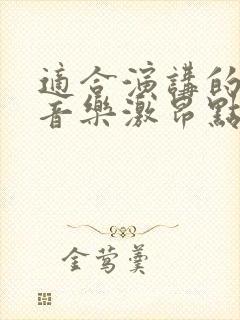 適合演講的
音樂激昂點
金鶯羹